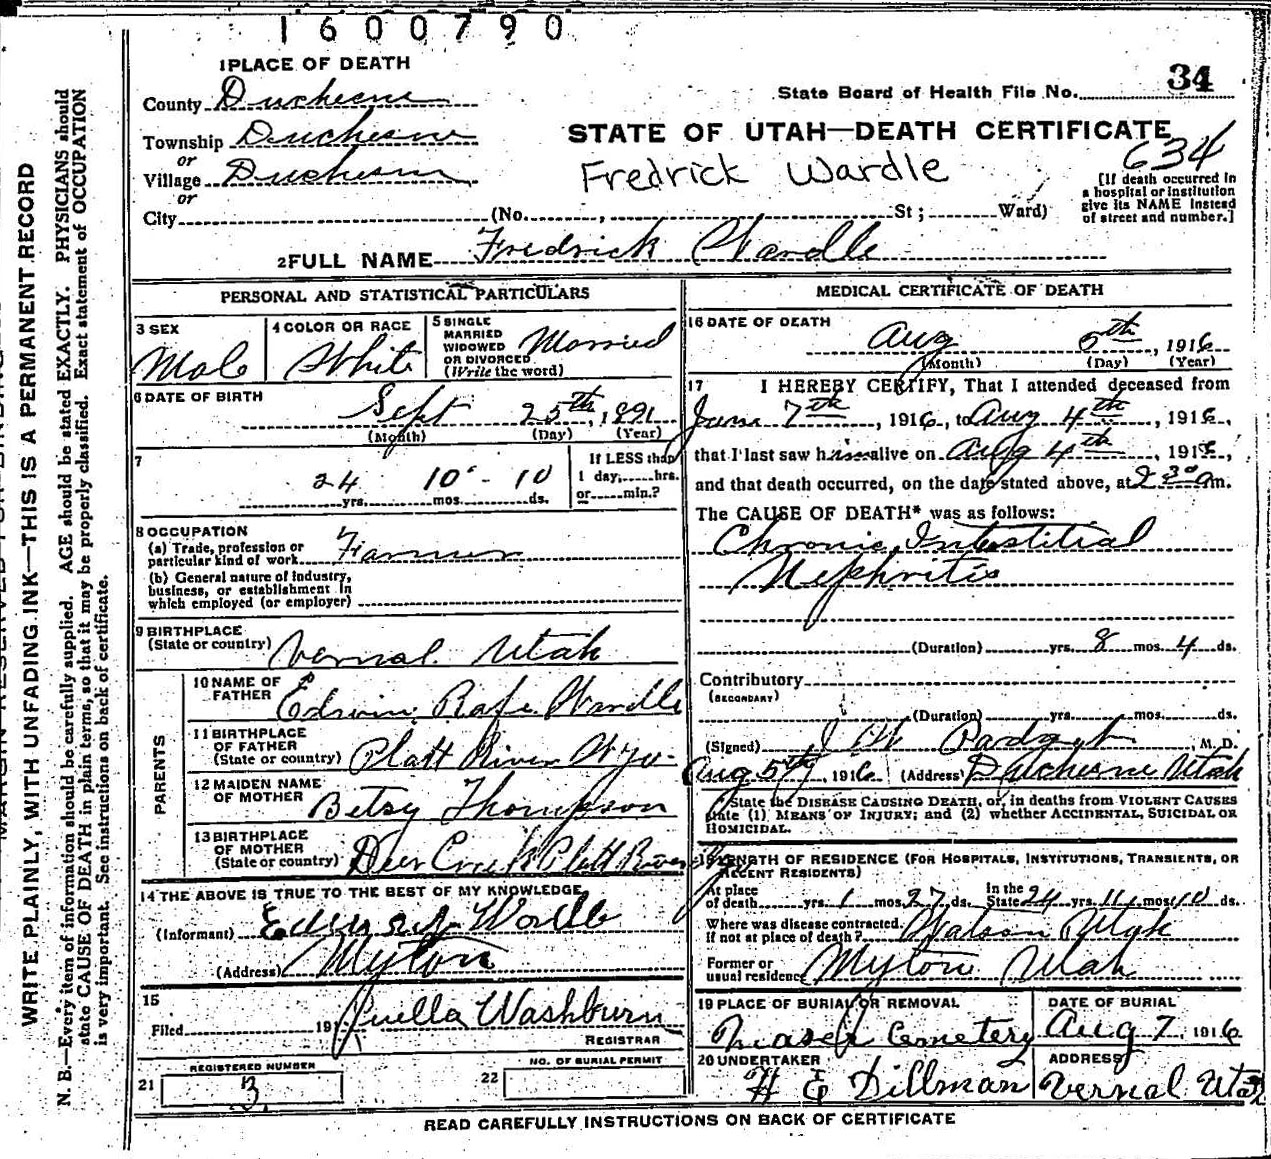 1600790
1 PLACE OF DEATH
34
County Duchesne
State Board of Health File No.
Township Duchesne
STATE OF UTAH—DEATH CERTIFICATE
634
or
Village Duchesne
Fredrick Wardle
[If death occurred in a hospital or institution give its NAME instead of street and number.]
or
City (No. , St ; Ward)
2 FULL NAME Fredrick Wardle
PERSONAL AND STATISTICAL PARTICULARS
3 SEX Male
4 COLOR OR RACE White
5 SINGLE MARRIED WIDOWED OR DIVORCED (Write the word) Married
6 DATE OF BIRTH
Sept 25th, 1891
(Month) (Day) (Year)
7
24 yrs. 10 mos. 10 ds.
If LESS than 1 day, hrs. or min.?
8 OCCUPATION
(a) Trade, profession or particular kind of work Farmer
(b) General nature of industry, business, or establishment in which employed (or employer)
9 BIRTHPLACE
(State or country) Vernal Utah
PARENTS
10 NAME OF FATHER Edwin Rafe Wardle
11 BIRTHPLACE OF FATHER (State or country) Platt River Wyo.
12 MAIDEN NAME OF MOTHER Betsy Thompson
13 BIRTHPLACE OF MOTHER (State or country) Deer Creek Platt River
14 THE ABOVE IS TRUE TO THE BEST OF MY KNOWLEDGE
(Informant) Wardle
(Address) Myton
15
Filed 191 Luella Washburn
REGISTRAR
REGISTERED NUMBER
21 3
NO. OF BURIAL PERMIT
22
MEDICAL CERTIFICATE OF DEATH
16 DATE OF DEATH
Aug 5th, 1916
(Month) (Day) (Year)
17 I HEREBY CERTIFY, That I attended deceased from
June 7th, 1916, to Aug 4th, 1916,
that I last saw him alive on Aug 4th, 1916,
and that death occurred, on the date stated above, at 2 30 a m.
The CAUSE OF DEATH* was as follows:
Chronic Interstitial
Nephritis
(Duration) yrs. 8 mos. 4 ds.
Contributory
(SECONDARY)
(Duration) yrs. mos. ds.
(Signed) J W Padgett, M. D.
Aug 5th, 1916 (Address) Duchesne Utah
*State the DISEASE CAUSING DEATH, or, in deaths from VIOLENT CAUSES
state (1) MEANS OF INJURY; and (2) whether ACCIDENTAL, SUICIDAL OR
HOMICIDAL.
18 LENGTH OF RESIDENCE (FOR HOSPITALS, INSTITUTIONS, TRANSIENTS, OR
RECENT RESIDENTS)
At place of death yrs. 1 mos. 27 ds. In the State 24 yrs. 11 mos. 10 ds.
Where was disease contracted, if not at place of death? Watson Utah
Former or usual residence Myton Utah
19 PLACE OF BURIAL OR REMOVAL
Cemetery
DATE OF BURIAL
Aug 7, 1916
20 UNDERTAKER
H E Dillman
ADDRESS
Vernal Utah
READ CAREFULLY INSTRUCTIONS ON BACK OF CERTIFICATE
WRITE PLAINLY, WITH UNFADING INK—THIS IS A PERMANENT RECORD
N. B.—Every item of information should be carefully supplied. AGE should be stated EXACTLY. PHYSICIANS should
state CAUSE OF DEATH in plain terms, so that it may be properly classified. Exact statement of OCCUPATION
is very important. See instructions on back of certificate.